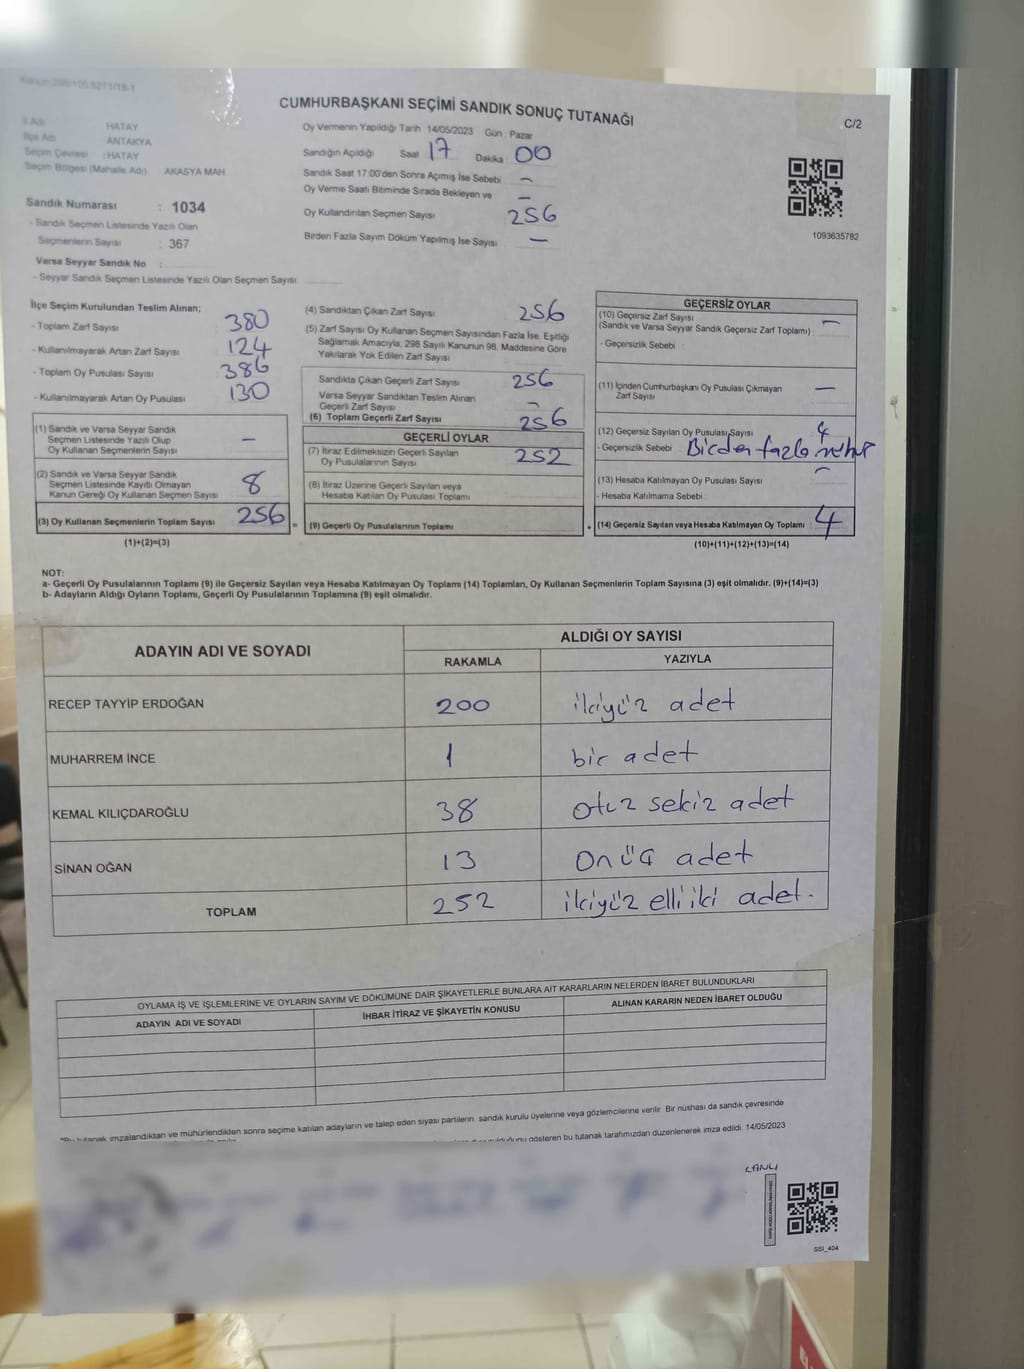 Kanun:298/105,6271/18-1
CUMHURBAŞKANI SEÇİMİ SANDIK SONUÇ TUTANAĞI
C/2
İl Adı HATAY
İlçe Adı ANTAKYA
Seçim Çevresi : HATAY
Seçim Bölgesi (Mahalle Adı) AKASYA MAH
Oy Vermenin Yapıldığı Tarih 14/05/2023 Gün : Pazar
Sandığın Açıldığı Saat 17 Dakika 00
Sandık Saat 17:00'den Sonra Açımış İse Sebebi –
Oy Verme Saati Bitiminde Sırada Bekleyen ve –
Oy Kullandırılan Seçmen Sayısı 256
Birden Fazla Sayım Döküm Yapılmış İse Sayısı –
1093635782
Sandık Numarası : 1034
- Sandık Seçmen Listesinde Yazılı Olan
Seçmenlerin Sayısı : 367
Varsa Seyyar Sandık No :
- Seyyar Sandık Seçmen Listesinde Yazılı Olan Seçmen Sayısı
İlçe Seçim Kurulundan Teslim Alınan;
- Toplam Zarf Sayısı 380
- Kullanılmayarak Artan Zarf Sayısı 124
- Toplam Oy Pusulası Sayısı 386
- Kullanılmayarak Artan Oy Pusulası 130
(1) Sandık ve Varsa Seyyar Sandık
Seçmen Listesinde Yazılı Olup
Oy Kullanan Seçmenlerin Sayısı –
(2) Sandık ve Varsa Seyyar Sandık
Seçmen Listesinde Kayıtlı Olmayan
Kanun Gereği Oy Kullanan Seçmen Sayısı 8
(3) Oy Kullanan Seçmenlerin Toplam Sayısı 256 =
(1)+(2)=(3)
(4) Sandıktan Çıkan Zarf Sayısı 256
(5) Zarf Sayısı Oy Kullanan Seçmen Sayısından Fazla İse, Eşitliği
Sağlamak Amacıyla; 298 Sayılı Kanunun 98. Maddesine Göre
Yakılarak Yok Edilen Zarf Sayısı
Sandıkta Çıkan Geçerli Zarf Sayısı 256
Varsa Seyyar Sandıktan Teslim Alınan
Geçerli Zarf Sayısı –
(6) Toplam Geçerli Zarf Sayısı 256
GEÇERLİ OYLAR
(7) İtiraz Edilmeksizin Geçerli Sayılan
Oy Pusulalarının Sayısı 252
(8) İtiraz Üzerine Geçerli Sayılan veya
Hesaba Katılan Oy Pusulası Toplamı
(9) Geçerli Oy Pusulalarının Toplamı +
GEÇERSİZ OYLAR
(10) Geçersiz Zarf Sayısı –
(Sandık ve Varsa Seyyar Sandık Geçersiz Zarf Toplamı) :
- Geçersizlik Sebebi :
(11) İçinden Cumhurbaşkanı Oy Pusulası Çıkmayan
Zarf Sayısı –
(12) Geçersiz Sayılan Oy Pusulası Sayısı 4
- Geçersizlik Sebebi Birden fazla mühür
(13) Hesaba Katılmayan Oy Pusulası Sayısı –
- Hesaba Katılmama Sebebi :
(14) Geçersiz Sayılan veya Hesaba Katılmayan Oy Toplamı 4
(10)+(11)+(12)+(13)=(14)
NOT:
a- Geçerli Oy Pusulalarının Toplamı (9) ile Geçersiz Sayılan veya Hesaba Katılmayan Oy Toplamı (14) Toplamları, Oy Kullanan Seçmenlerin Toplam Sayısına (3) eşit olmalıdır. (9)+(14)=(3)
b- Adayların Aldığı Oyların Toplamı, Geçerli Oy Pusulalarının Toplamına (9) eşit olmalıdır.
ADAYIN ADI VE SOYADI ALDIĞI OY SAYISI
RAKAMLA YAZIYLA
RECEP TAYYİP ERDOĞAN 200 ikiyüz adet
MUHARREM İNCE 1 bir adet
KEMAL KILIÇDAROĞLU 38 otuz sekiz adet
SİNAN OĞAN 13 onüç adet
TOPLAM 252 ikiyüz elli iki adet.
OYLAMA İŞ VE İŞLEMLERİNE VE OYLARIN SAYIM VE DÖKÜMÜNE DAİR ŞİKAYETLERLE BUNLARA AİT KARARLARIN NELERDEN İBARET BULUNDUKLARI
ADAYIN ADI VE SOYADI İHBAR İTİRAZ VE ŞİKAYETİN KONUSU ALINAN KARARIN NEDEN İBARET OLDUĞU
*Bu tutanak imzalandıktan ve mühürlendikten sonra seçime katılan adayların ve talep eden siyasi partilerin sandık kurulu üyelerine veya gözlemcilerine verilir. Bir nüshası da sandık çevresinde
gösteren bu tutanak tarafımızdan düzenlenerek imza edildi. 14/05/2023
CANLI
SSİ_404